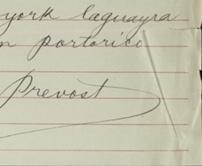 york laguayra
n portorico
Prevost